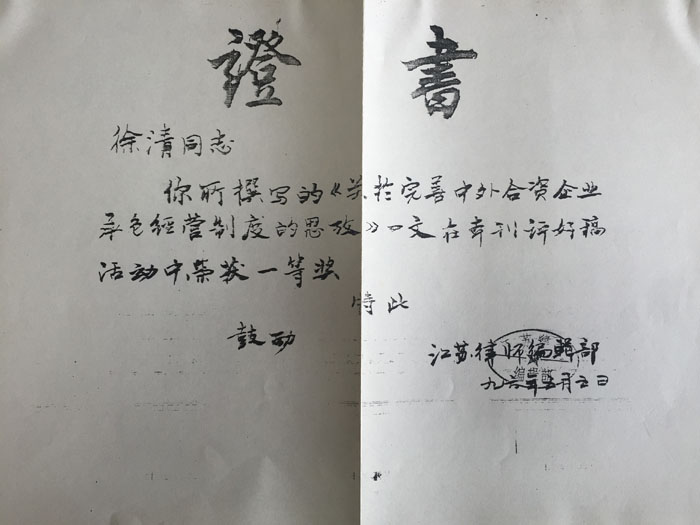 證書
徐清同志
你所撰写的《关於完善中外合资企业
承包经营制度的思考》一文在本刊评好稿
活动中荣获一等奖
特此
鼓励
江苏律师编辑部
九六年五月五日